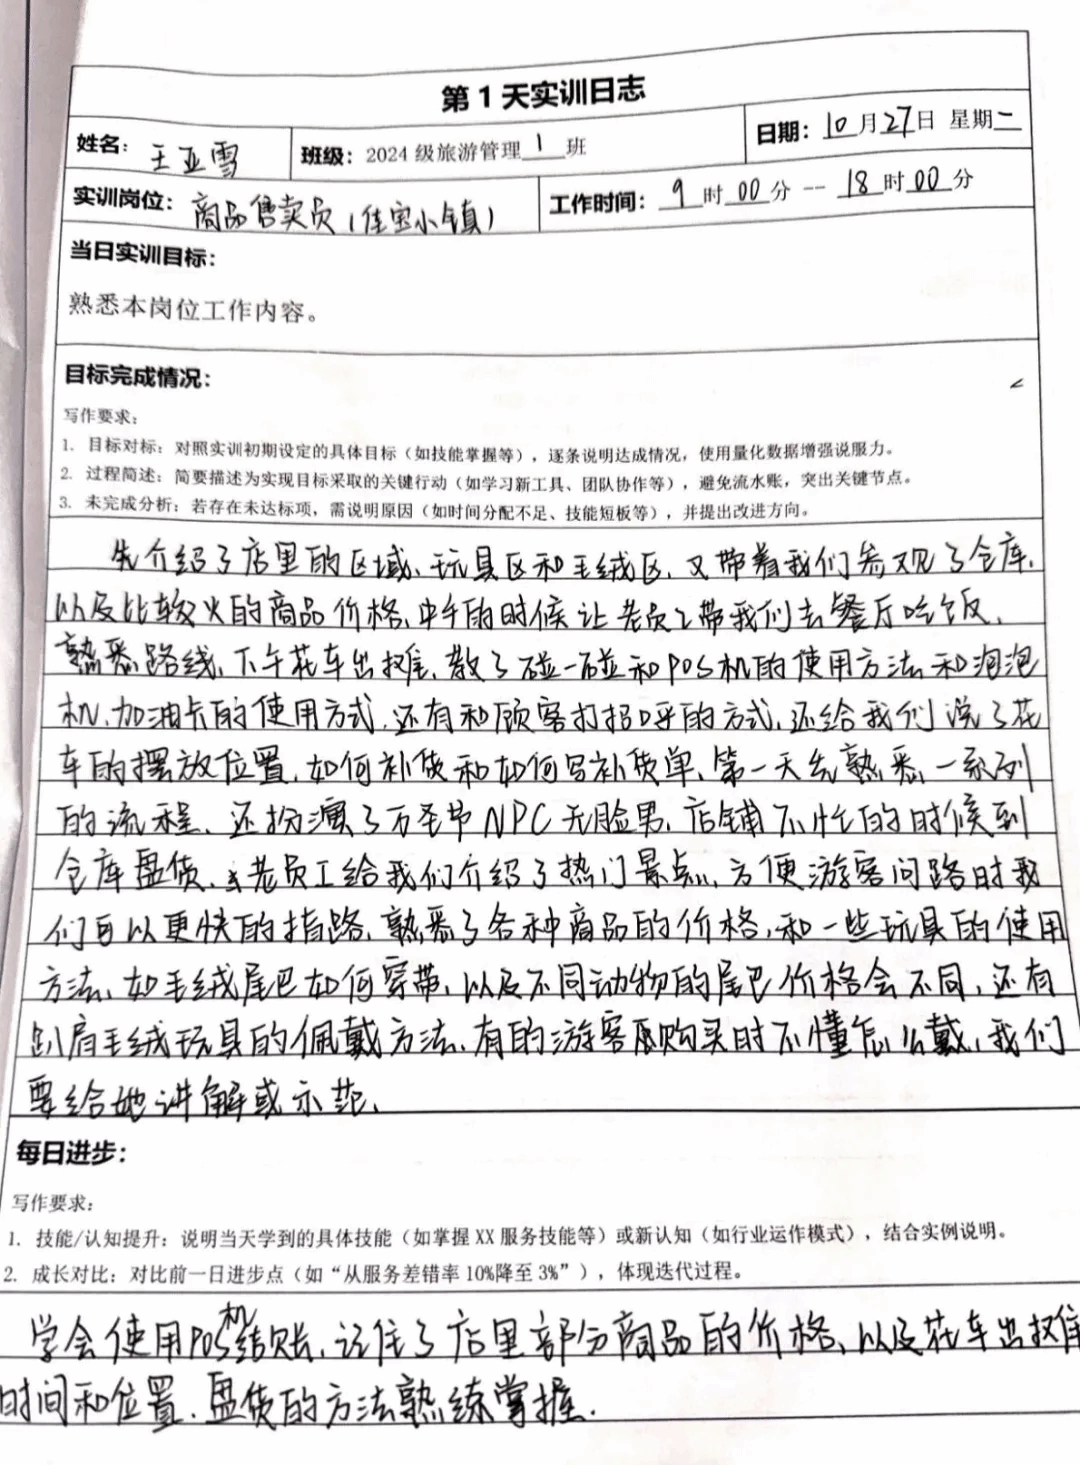 第1天实训日志
姓名: 王亚雪 班级: 2024级旅游管理 1 班 日期: 10月27日 星期二
实训岗位: 商品售卖员(佳宝小镇) 工作时间: 9时00分--18时00分
当日实训目标:
熟悉本岗位工作内容。
目标完成情况:
写作要求:
1. 目标对标: 对照实训初期设定的具体目标(如技能掌握等),逐条说明达成情况,使用量化数据增强说服力。
2. 过程简述: 简要描述为实现目标采取的关键行动(如学习新工具、团队协作等),避免流水账,突出关键节点。
3. 未完成分析: 若存在未达标项,需说明原因(如时间分配不足、技能短板等),并提出改进方向。
先介绍了店里的区域、玩具区和毛绒区,又带着我们参观了仓库,
以及比较火的商品价格,中午的时候让老员工带我们去餐厅吃饭,
熟悉路线,下午花车出摊,教了碰一碰和POS机的使用方法和泡泡
机、加油卡的使用方式,还有和顾客打招呼的方式,还给我们说了花
车的摆放位置,如何补货和如何写补货单,第一天先熟悉一系列
的流程,还扮演了万圣节NPC无脸男,店铺不忙的时候到
仓库盘货,老员工给我们介绍了热门景点,方便游客问路时我
们可以更快的指路,熟悉了各种商品的价格,和一些玩具的使用
方法,如毛绒尾巴如何穿带,以及不同动物的尾巴价格会不同,还有
趴肩毛绒玩具的佩戴方法,有的游客购买时不懂怎么戴,我们
要给她讲解或示范、
每日进步:
写作要求:
1. 技能/认知提升: 说明当天学到的具体技能(如掌握XX服务技能等)或新认知(如行业运作模式),结合实例说明。
2. 成长对比: 对比前一日进步点(如“从服务差错率10%降至3%”),体现迭代过程。
学会使用POS机结账,记住了店里部分商品的价格,以及花车出摊
时间和位置、盘货的方法熟练掌握.